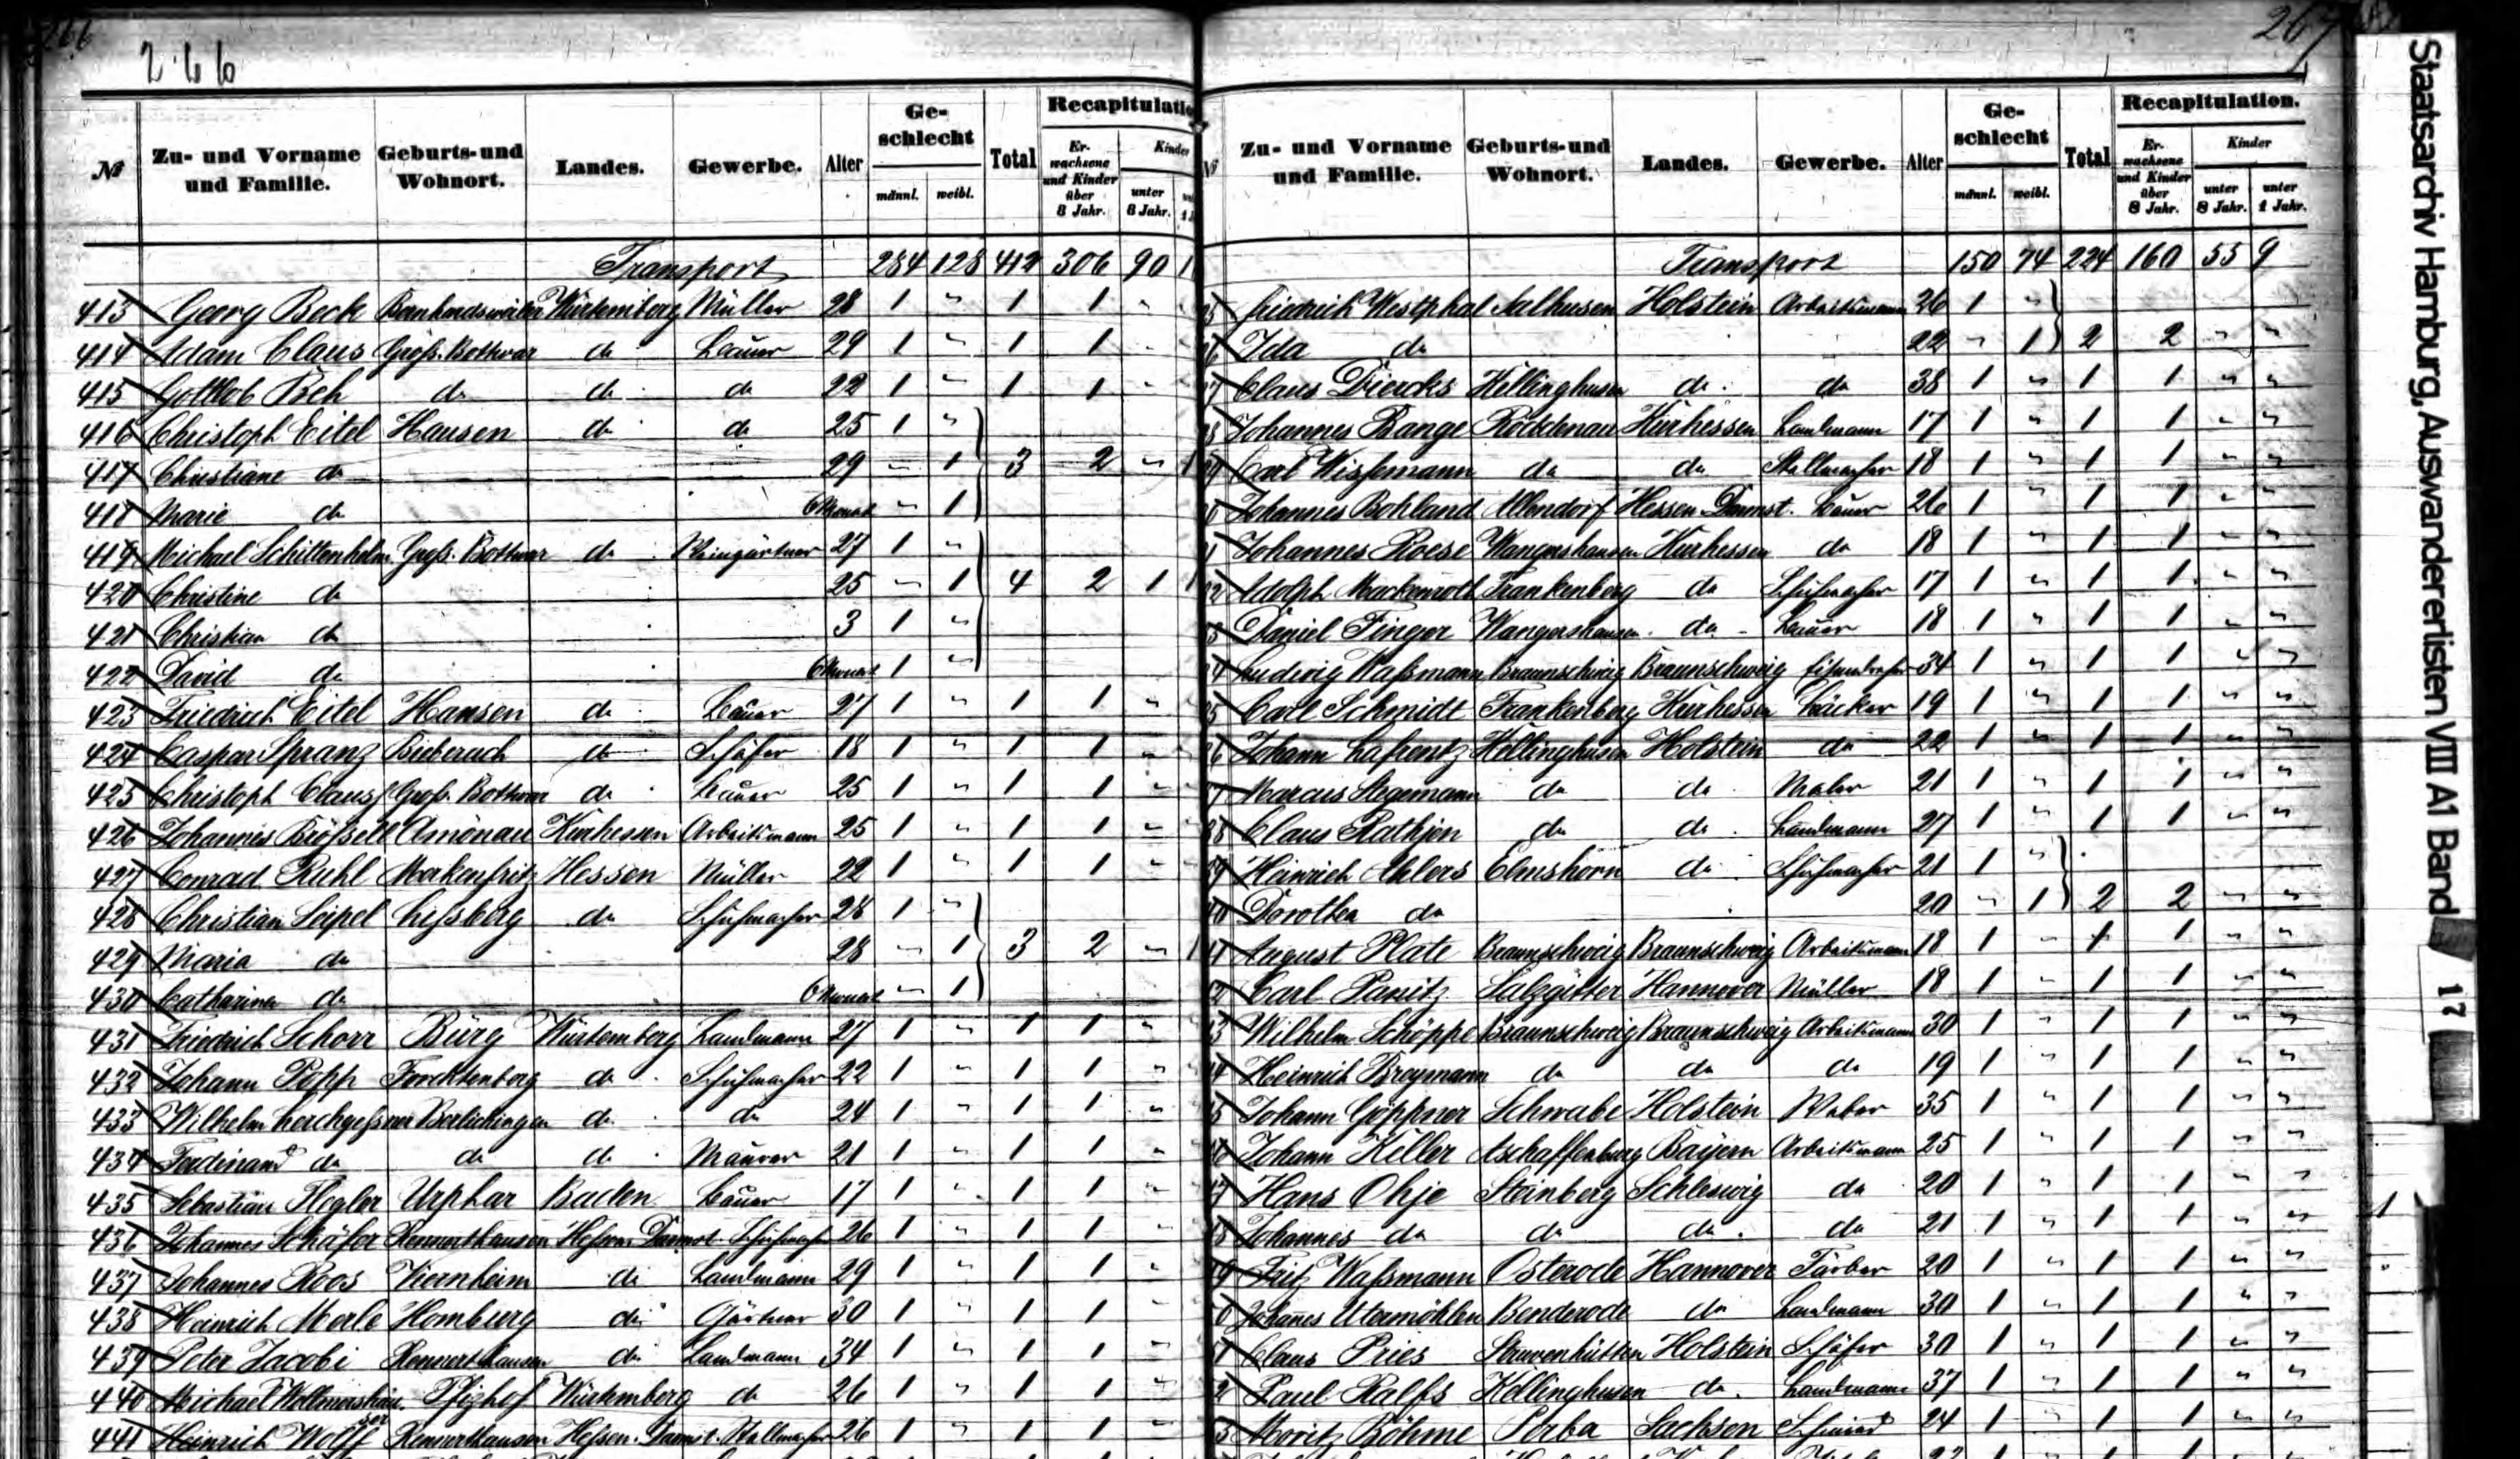 266
№ Zu- und Vorname und Familie. Geburts- und Wohnort. Landes. Gewerbe. Alter Geschlecht männl. weibl. Total Recapitulatio Erwachsene und Kinder über 8 Jahr. Kinder unter 8 Jahr.
Transport 284 128 412 306 90 1
413 Georg Beck Württemberg Müller 28 1 " 1 1 "
414 Adam Claus Groß. Bottwar do Bauer 29 1 " 1 1 "
415 Gottlob Beh do do do 22 1 " 1 1 "
416 Christoph Eitel Hausen do do 25 1 "
417 Christiane do 29 " 1 3 2 " 1
418 Marie do 6 Monat " 1
419 Michael Schittenhelm Groß. Bottwar do Weingärtner 27 1 "
420 Christine do 25 " 1 4 2 1 1
421 Christian do 3 1 "
422 David do 6 Monat 1 "
423 Friedrich Eitel Hausen do Bauer 27 1 " 1 1 "
424 Caspar Spranz Bieberach do Schäfer 18 1 " 1 1 "
425 Christoph Clauss Groß. Bottwar do Bauer 25 1 " 1 1 "
426 Johannes Amönau Kurhessen Arbeitsmann 25 1 " 1 1 "
427 Conrad Ruhl Merkenfritz Hessen Müller 22 1 " 1 1 "
428 Christian Seipel Lißberg do Schuhmacher 28 1 "
429 Maria do 28 " 1 3 2 " 1
430 Catharina do 6 Monat " 1
431 Friedrich Schorr Bürg Württemberg Landmann 27 1 " 1 1 "
432 Johann Popp Forchtenberg do Schuhmacher 22 1 " 1 1 "
433 Wilhelm Lerchgeßner Berlichingen do do 24 1 " 1 1 "
434 Ferdinand do do do Maurer 21 1 " 1 1 "
435 Sebastian Flegler Urphar Baden Bauer 17 1 " 1 1 "
436 Johannes Schäfer Rennerthausen Hessen Darmst. Schuhmacher 26 1 " 1 1 "
437 Johannes Roos Viernheim do Landmann 29 1 " 1 1 "
438 Heinrich Merle Homburg do Gärtner 30 1 " 1 1 "
439 Peter Jacobi Rennerthausen do Landmann 34 1 " 1 1 "
440 Michael Wollmershäuser Pfizhof Württemberg do 26 1 " 1 1 "
441 Heinrich Wolff Rennerthausen Hessen. Darmst. Stellmacher 26 1 " 1 1 "
267
№ Zu- und Vorname und Familie. Geburts- und Wohnort. Landes. Gewerbe. Alter Geschlecht männl. weibl. Total Recapitulation. Erwachsene und Kinder über 8 Jahr. Kinder unter 8 Jahr. unter 1 Jahr.
Transport 150 74 224 160 55 9
Friedrich Westphal Holstein Arbeitsmann 26 1 "
Ida do 22 " 1 2 2 " "
Claus Diercks Kellinghusen do do 38 1 " 1 1 " "
Johannes Bange Röddenau Kurhessen Landmann 17 1 " 1 1 " "
Carl Wissemann do do Stellmacher 18 1 " 1 1 " "
Johannes Bohland Allendorf Hessen Darmst. Bauer 26 1 " 1 1 " "
Johannes Roese Wangershausen Kurhessen do 18 1 " 1 1 " "
Adolph Mackenroth Frankenberg do Schuhmacher 17 1 " 1 1 " "
Daniel Finger Wangershausen do Bauer 18 1 " 1 1 " "
Ludwig Waßmann Braunschweig Braunschweig Eisendreher 34 1 " 1 1 " "
Carl Schmidt Frankenberg Kurhessen Bäcker 19 1 " 1 1 " "
Johann Lafrentz Kellinghusen Holstein do 22 1 " 1 1 " "
Marcus Stegemann do do Maler 21 1 " 1 1 " "
Claus Rathjen do do Landmann 27 1 " 1 1 " "
Heinrich Ahlers Elmshorn do Schuhmacher 21 1 "
Dorothea do 20 " 1 2 2 " "
August Plate Braunschweig Braunschweig Arbeitsmann 18 1 " 1 1 " "
Carl Panitz Salzgitter Hannover Müller 18 1 " 1 1 " "
Wilhelm Schöppe Braunschweig Braunschweig Arbeitsmann 30 1 " 1 1 " "
Heinrich Breymann do do do 19 1 " 1 1 " "
Johann Göppner Schwabe Holstein Weber 35 1 " 1 1 " "
Johann Keller Aschaffenburg Bayern Arbeitsmann 25 1 " 1 1 " "
Hans Ohje Steinberg Schleswig do 20 1 " 1 1 " "
Johannes do do do do 21 1 " 1 1 " "
Fritz Waßmann Osterode Hannover Färber 20 1 " 1 1 " "
Johannes Utermöhlen Benderode do Landmann 30 1 " 1 1 " "
Claus Pries Struvenhütten Holstein Schäfer 30 1 " 1 1 " "
Paul Ralfs Kellinghusen do Landmann 37 1 " 1 1 " "
Moritz Böhme Zerba Sachsen Schmied 24 1 " 1 1 " "
Staatsarchiv Hamburg, Auswandererlisten VIII A1 Band 17